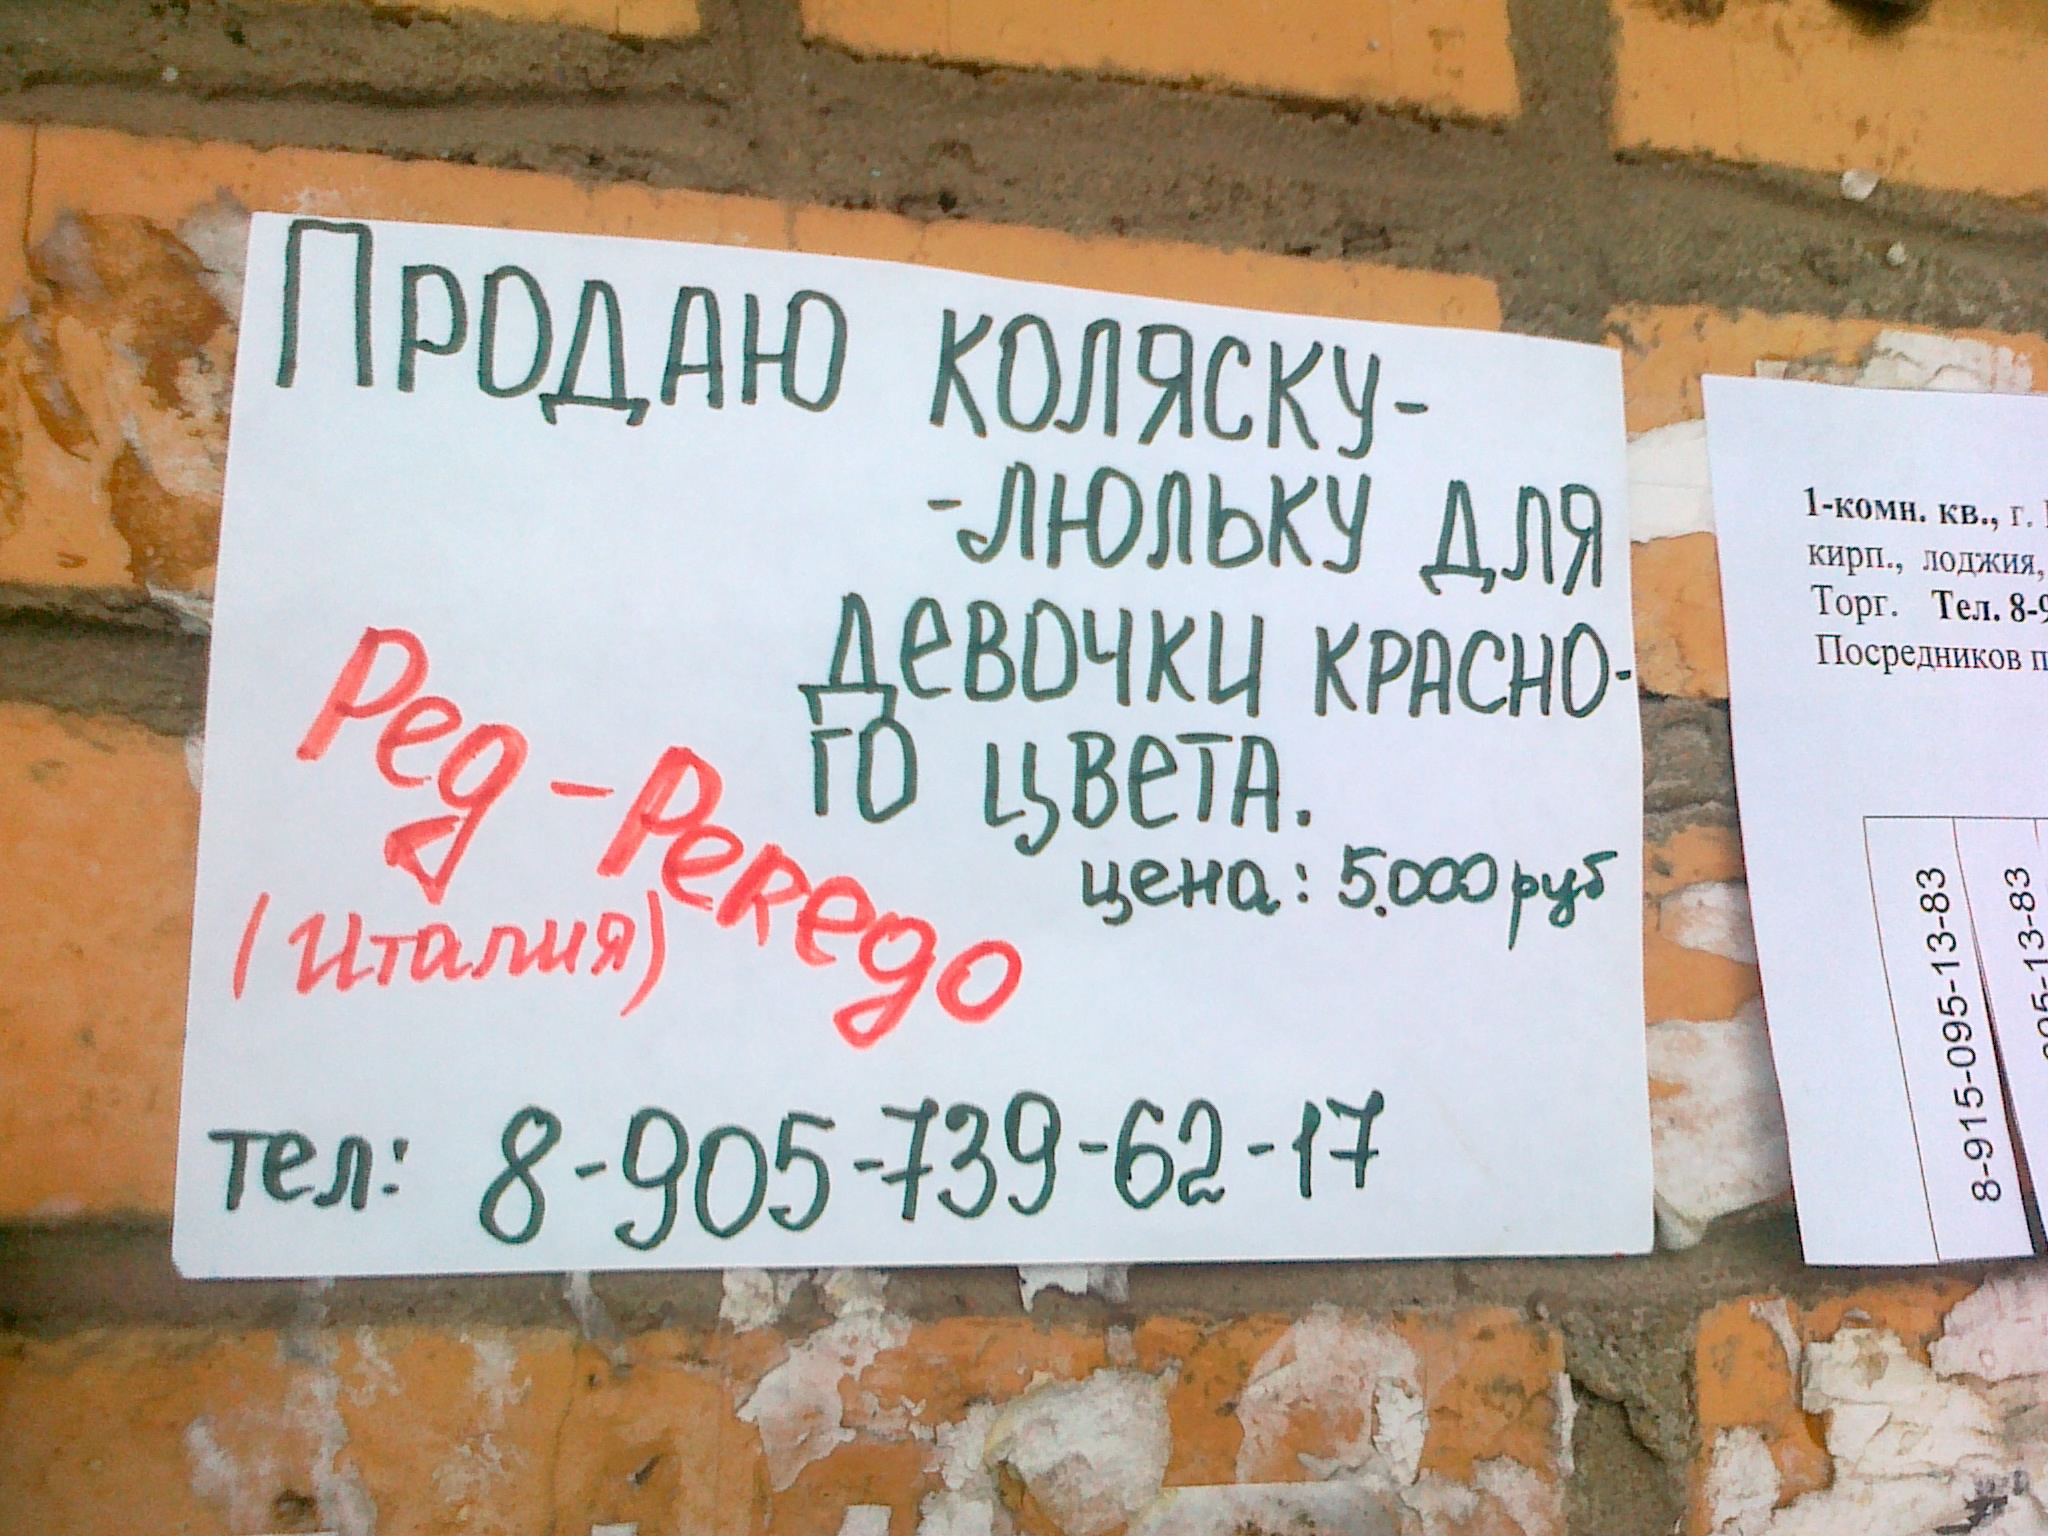 Продаю коляску-
-люльку для
девочки красно-
го цвета.
цена: 5.000 руб
Рег-Рекего
(Италия)
тел: 8-905-739-62-17
1-комн. кв., г.
кирп., лоджия,
Торг. Тел. 8-9
Посредников п
8-915-095-13-83
95-13-83